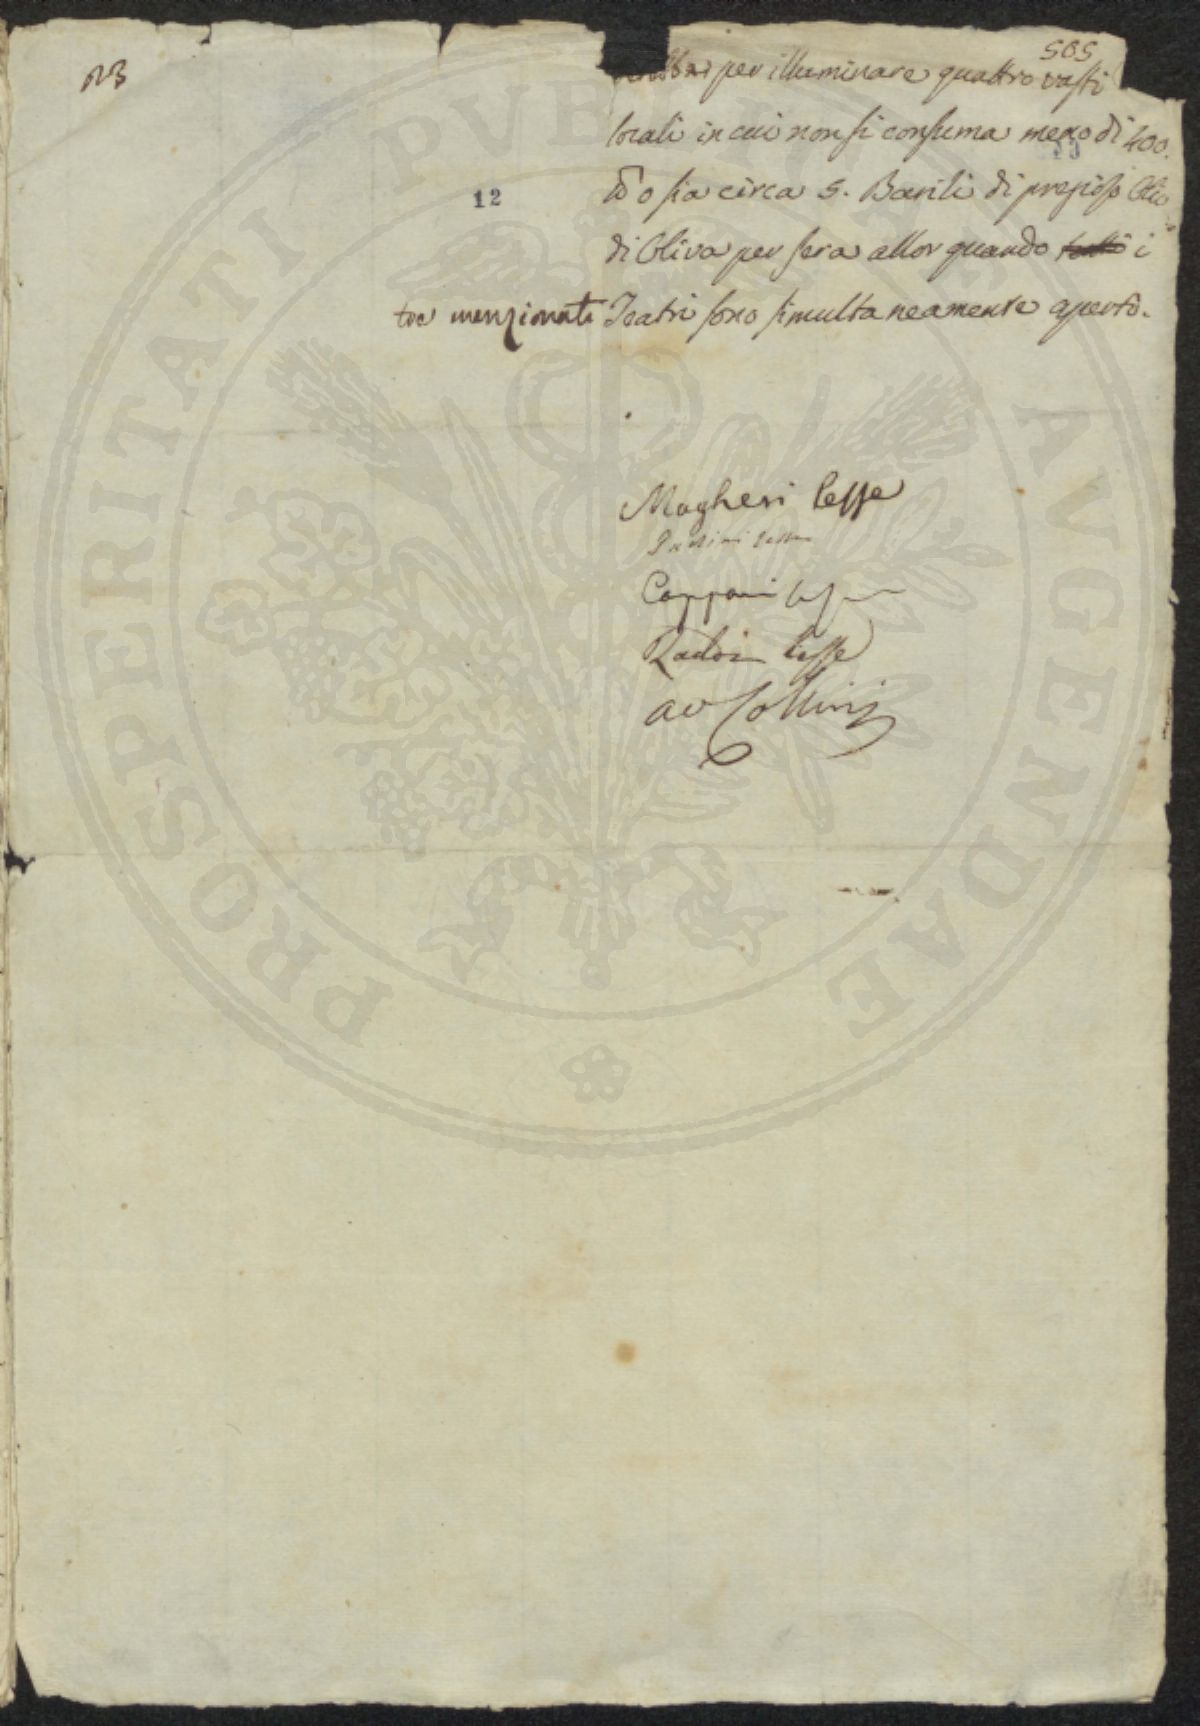 23
505
per illuminare quattro vasti
locali in cui non si consuma meno di 400.
o sia circa 5. Barili di prezioso Olio
12
di Oliva per sera allor quando tutti i
tre menzionati Teatri sono simultaneamente aperti.
Magheri lesse
Capponi
Raddi lesse
av Collini
PROSPERITATI PVBLICAE AVGENDAE